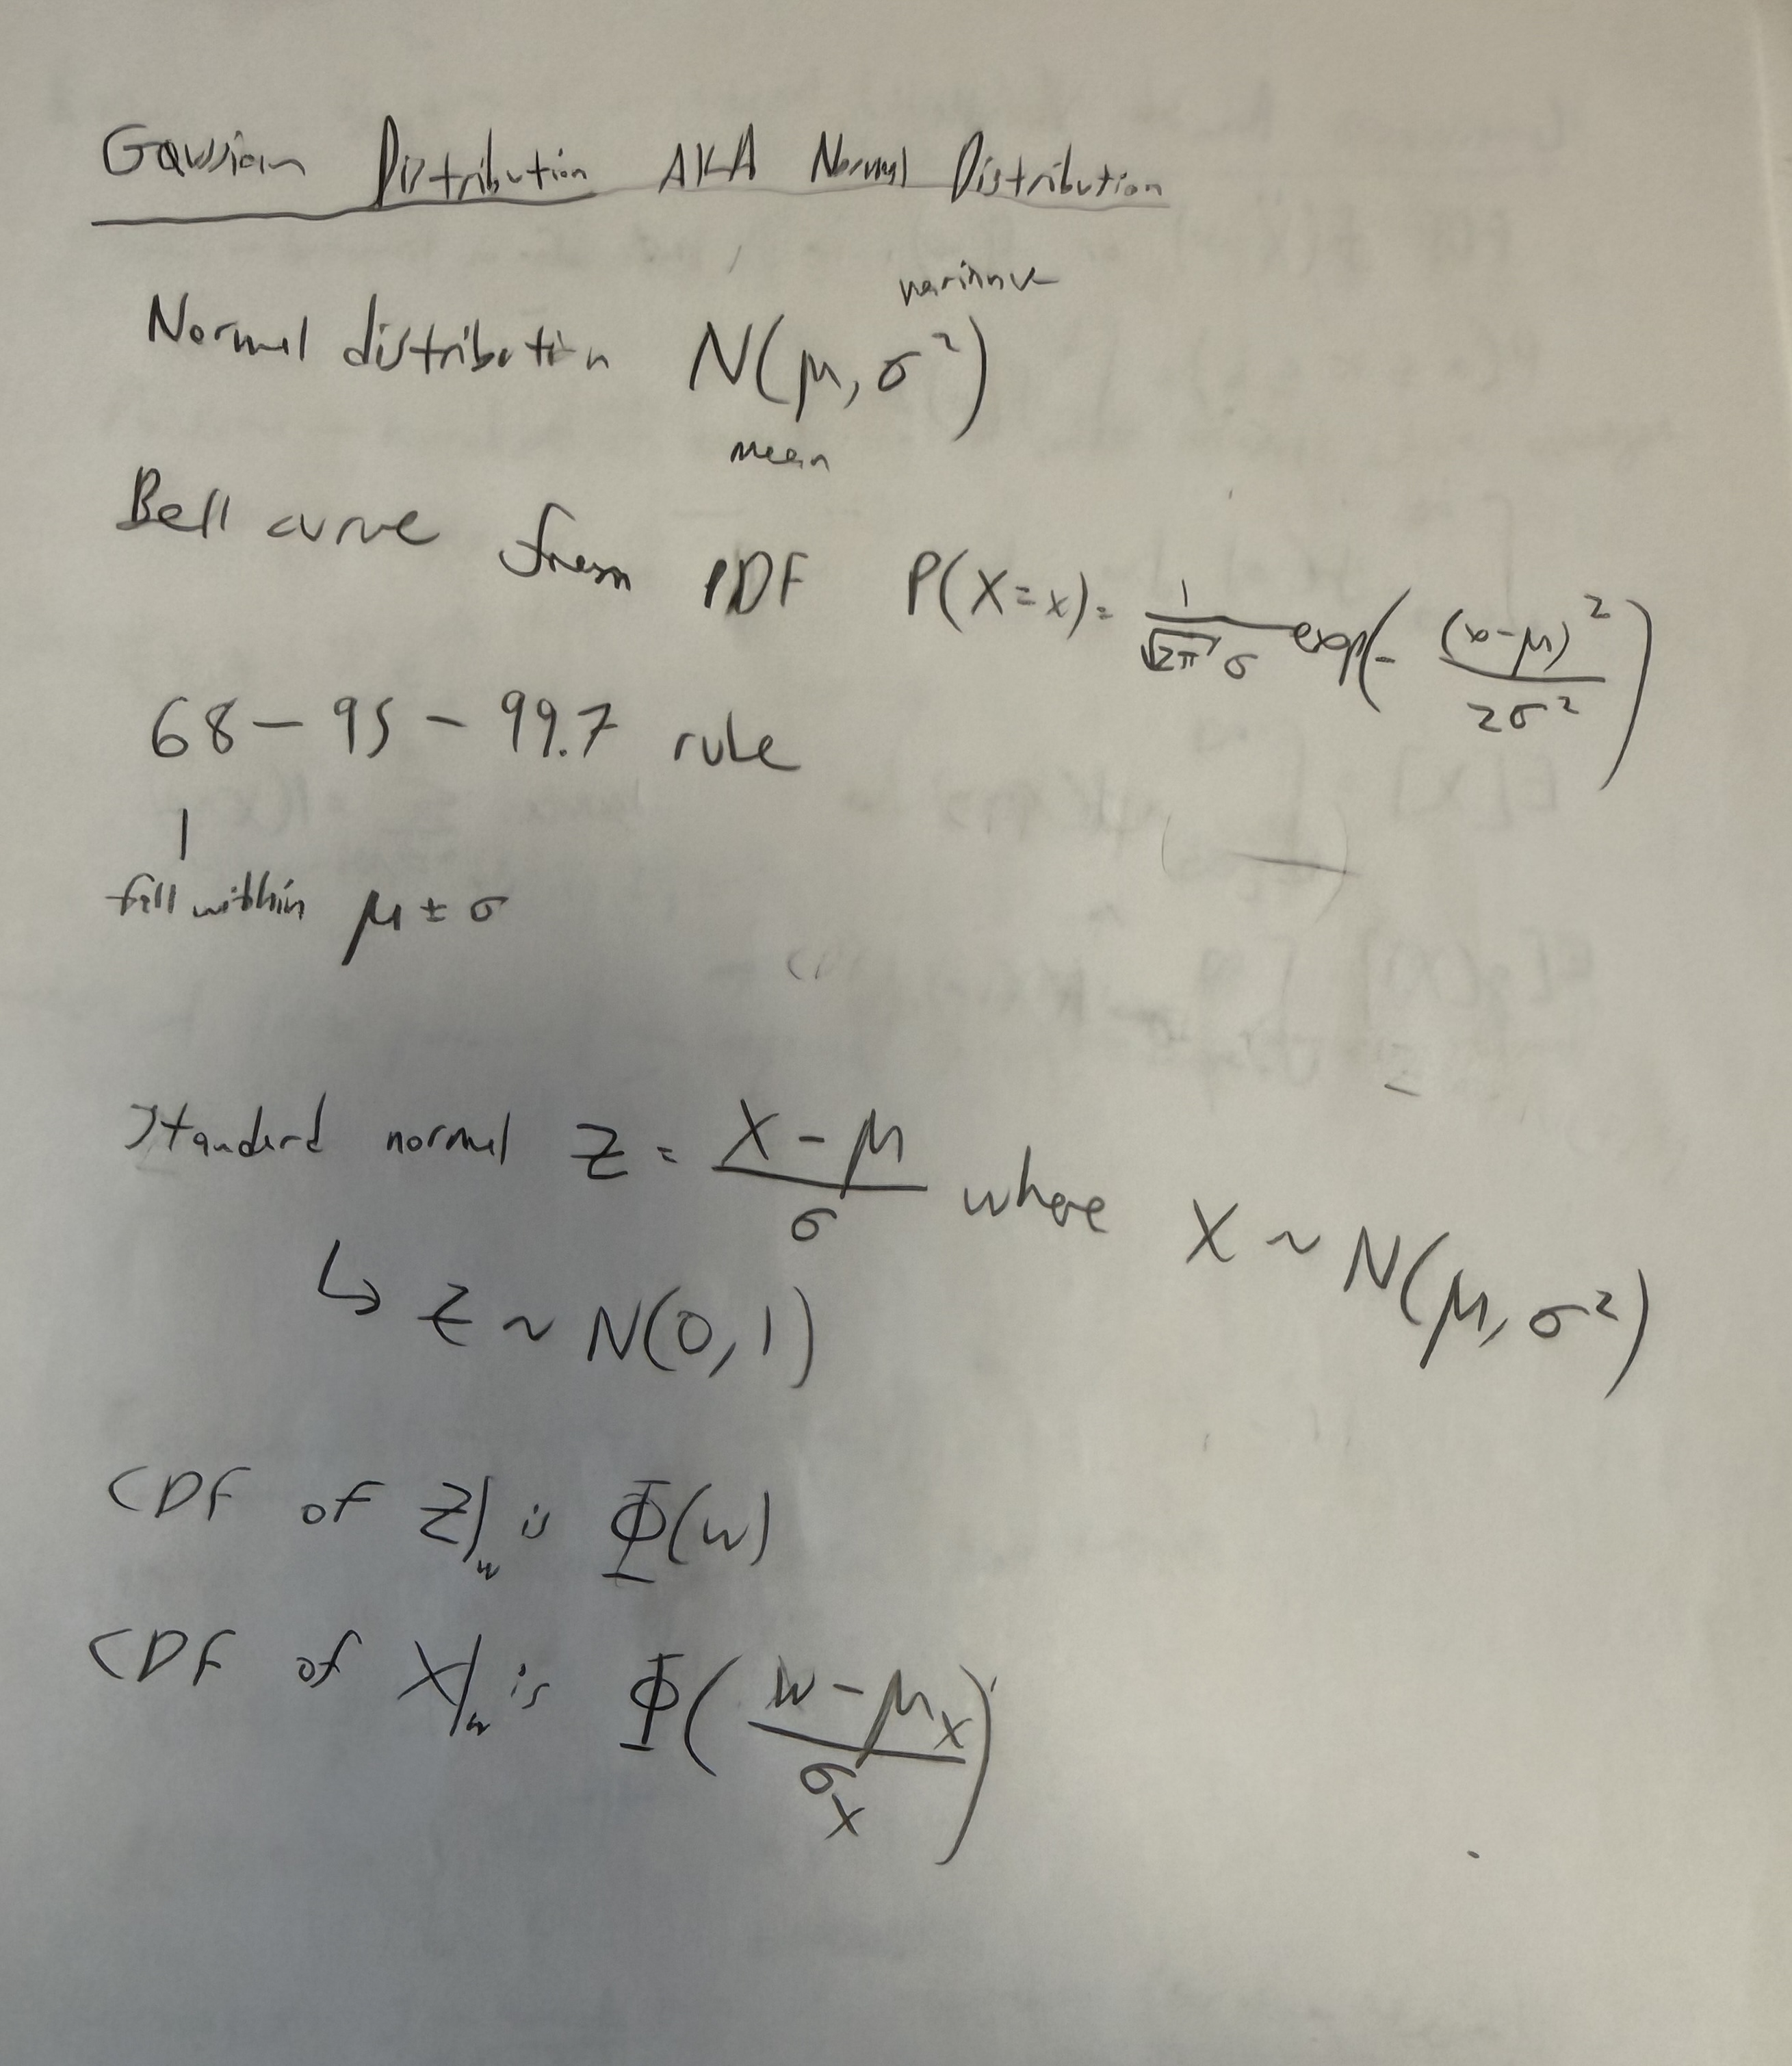 Gaussian Distribution AKA Normal Distribution
variance
Normal distribution N(μ, σ²)
mean
Bell curve from PDF P(X=x) = 1/(√2π σ) exp(- (x-μ)²/2σ²)
68 - 95 - 99.7 rule
fall within μ ± σ
Standard normal Z = (X - μ)/σ where X ~ N(μ, σ²)
↳ Z ~ N(0, 1)
CDF of Z|w is Φ(w)
CDF of X|w is Φ((w - μx)/σx)